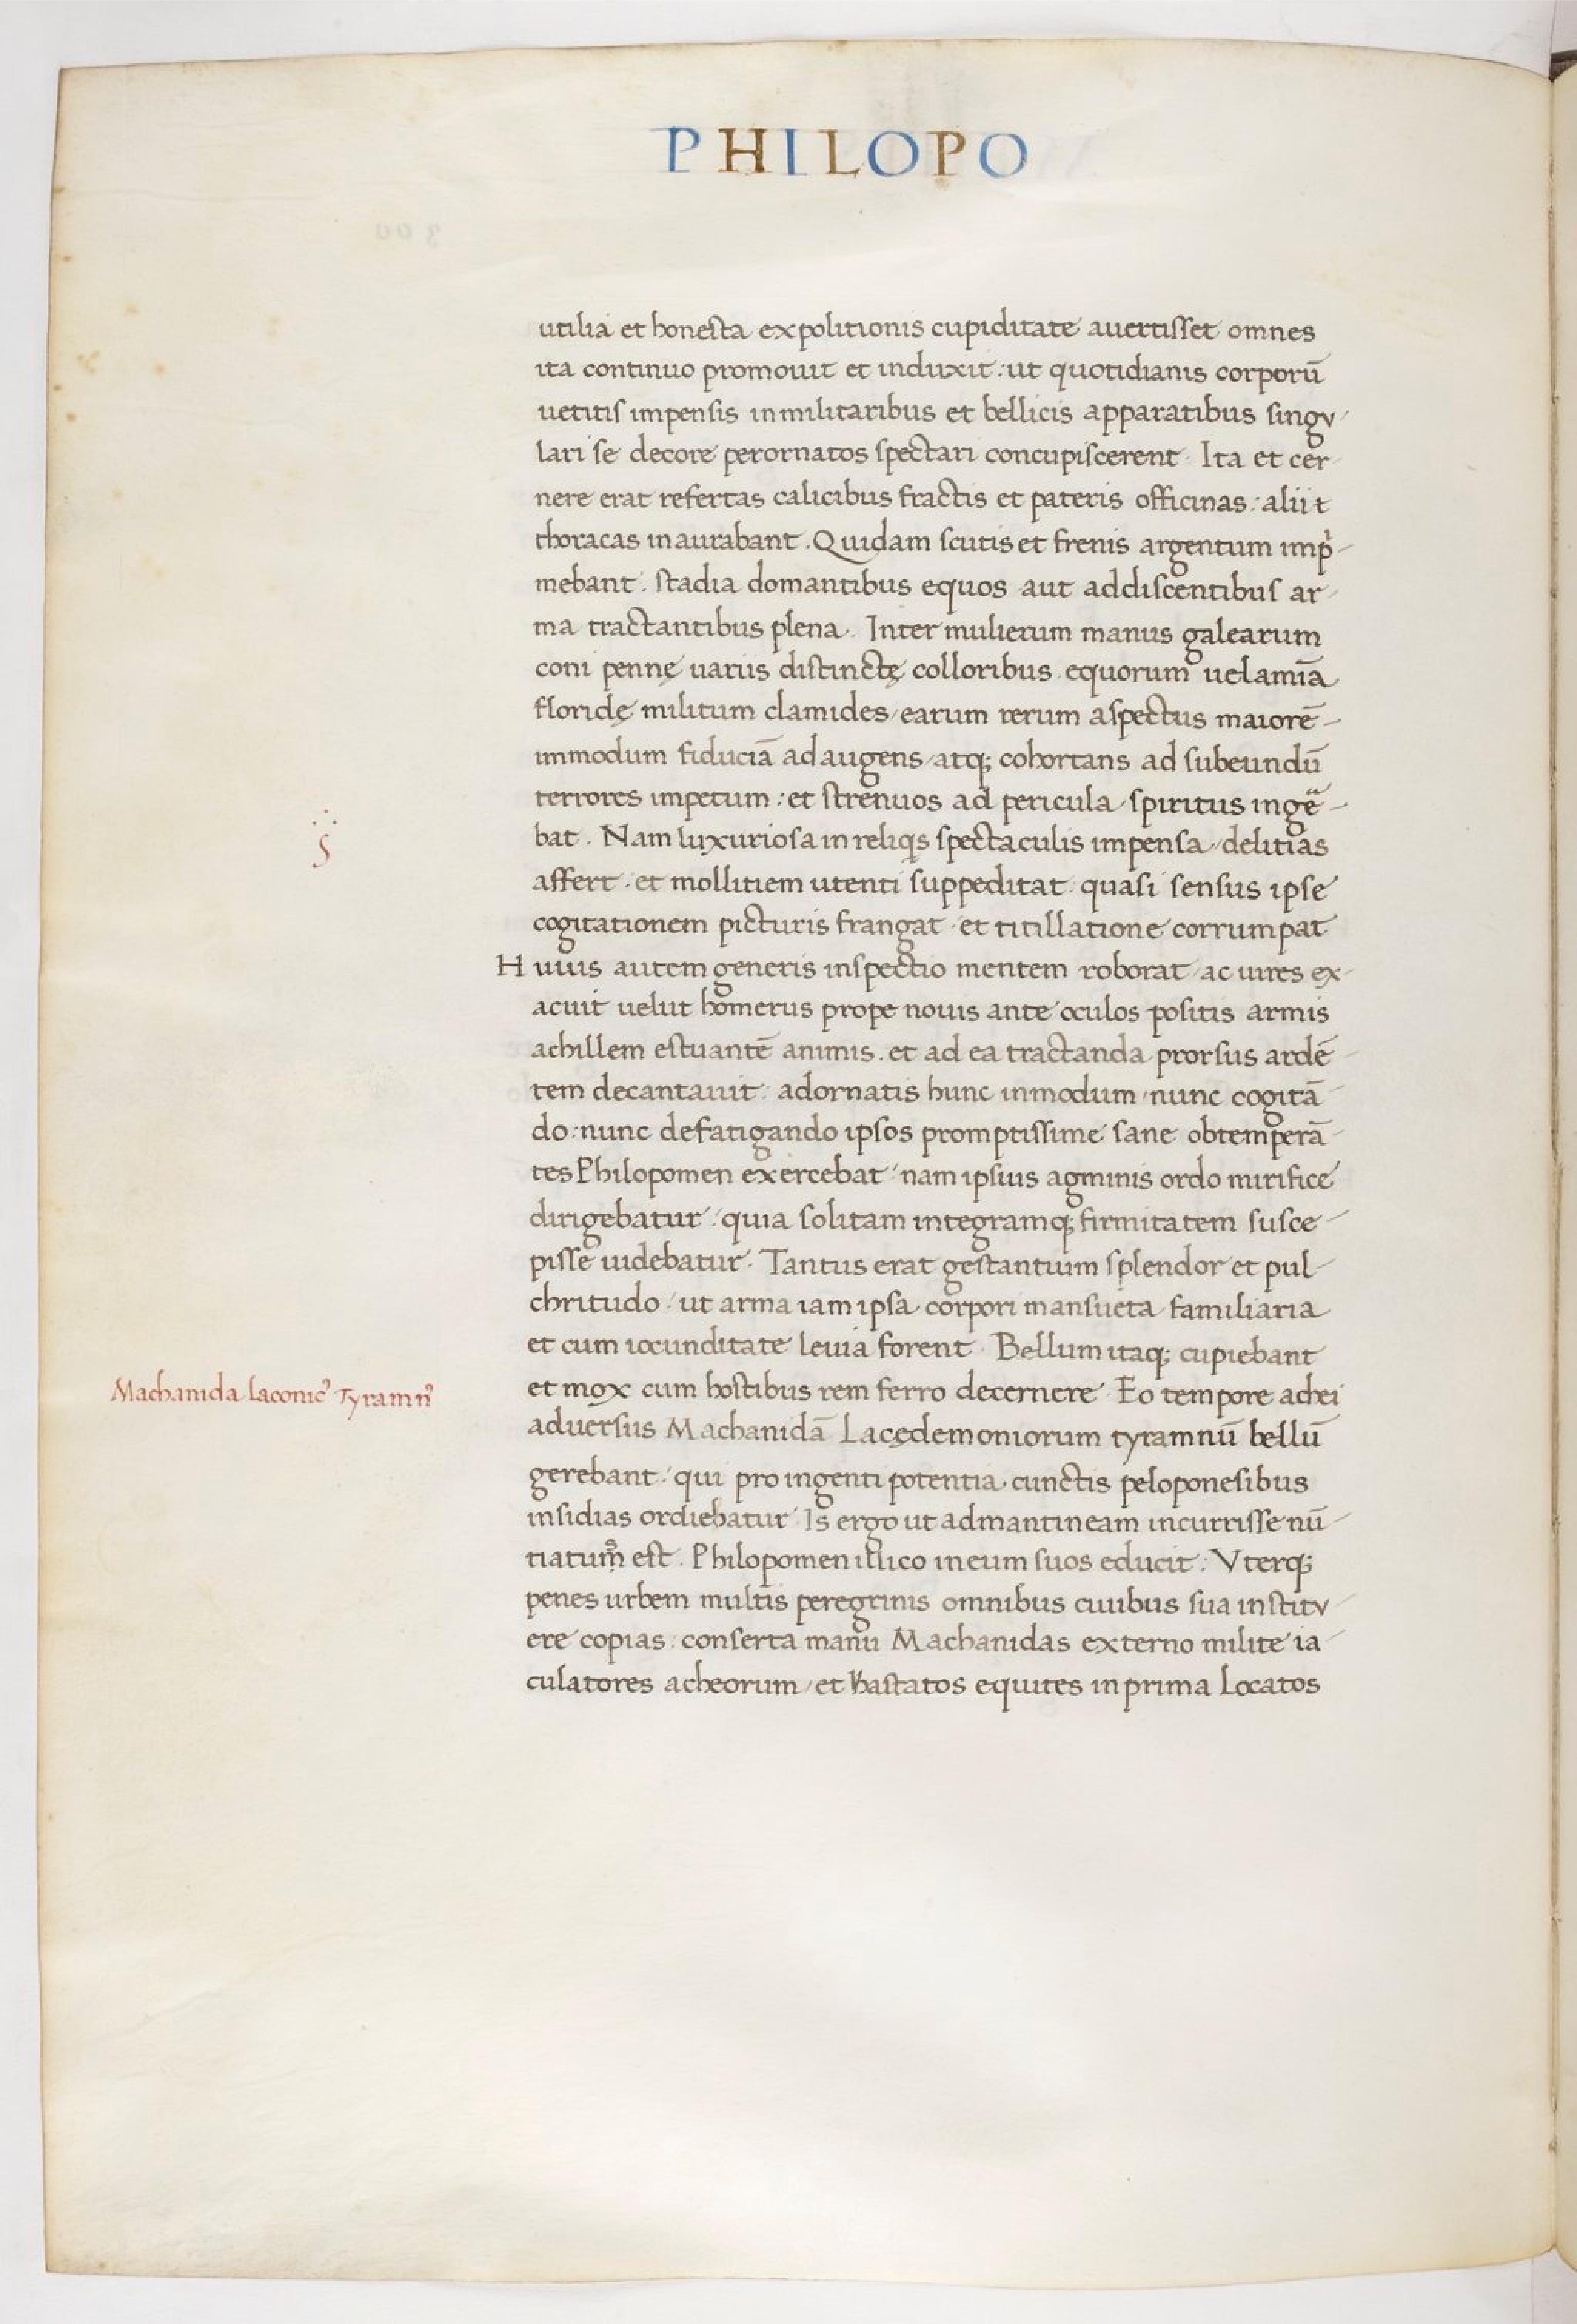 PHILOPO
utilia et honesta expolitionis cupiditate auertisset omnes
ita continuo promouit et induxit: ut quotidianis corporū
uetitis impensis in militaribus et bellicis apparatibus singv-
lari se decore perornatos spectari concupiscerent. Ita et cer-
nere erat refertas calicibus fractis et pateris officinas: alii t
thoracas inaurabant. Quidam scutis et frenis argentum imp̍-
mebant. stadia domantibus equos aut addiscentibus ar-
ma tractantibus plena. Inter mulierum manus galearum
coni pennę uariis distinctę colloribus. equorum uelamīa
floridę militum clamides/earum rerum aspectus maiorē-
immodum fiduciā adaugens/atq; cohortans ad subeundū
terrores impetum: et strenuos ad pericula spiritus ingēa-
bat. Nam luxuriosa in reliqis spectaculis impensa/delitias
affert. et mollitiem utenti suppeditat. quasi sensus ipse
cogitationem picturis frangat. et titillatione corrumpat
Huius autem generis inspectio mentem roborat ac uires ex-
acuit uelut homerus prope nouis ante oculos positis armis
achillem estuantē animis. et ad ea tractanda prorsus ardē-
tem decantauit. adornatis hunc inmodum/nunc cogitā-
do: nunc defatigando ipsos promptissime sane obtemperā-
tes Philopomen exercebat: nam ipsius agminis ordo mirifice
dirigebatur: quia solitam integramq; firmitatem susce-
pisse uidebatur. Tantus erat gestantium splendor et pul-
chritudo: ut arma iam ipsa corpori mansueta familiaria
et cum iocunditate leuia forent. Bellum itaq; cupiebant
Machanida laconic⁹ Tyramn⁹
et mox cum hostibus rem ferro decernere. Eo tempore achei
aduersus Machanidā Lacędemoniorum tyramnū bellū
gerebant: qui pro ingenti potentia cunctis peloponesibus
insidias ordiebatur. Is ergo ut admantineam incurrisse nū-
tiatum est. Philopomen illico in eum suos educit: Vterq;
penes urbem multis peregrinis omnibus ciuibus sua institv-
ere copias: conserta manu Machanidas externo milite ia-
culatores acheorum/et hastatos equites in prima Locatos